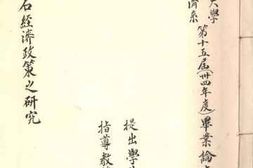 大學
濟系
第十五屆(卅四年度)畢業論
石經濟政策之研究
提出學
指導教